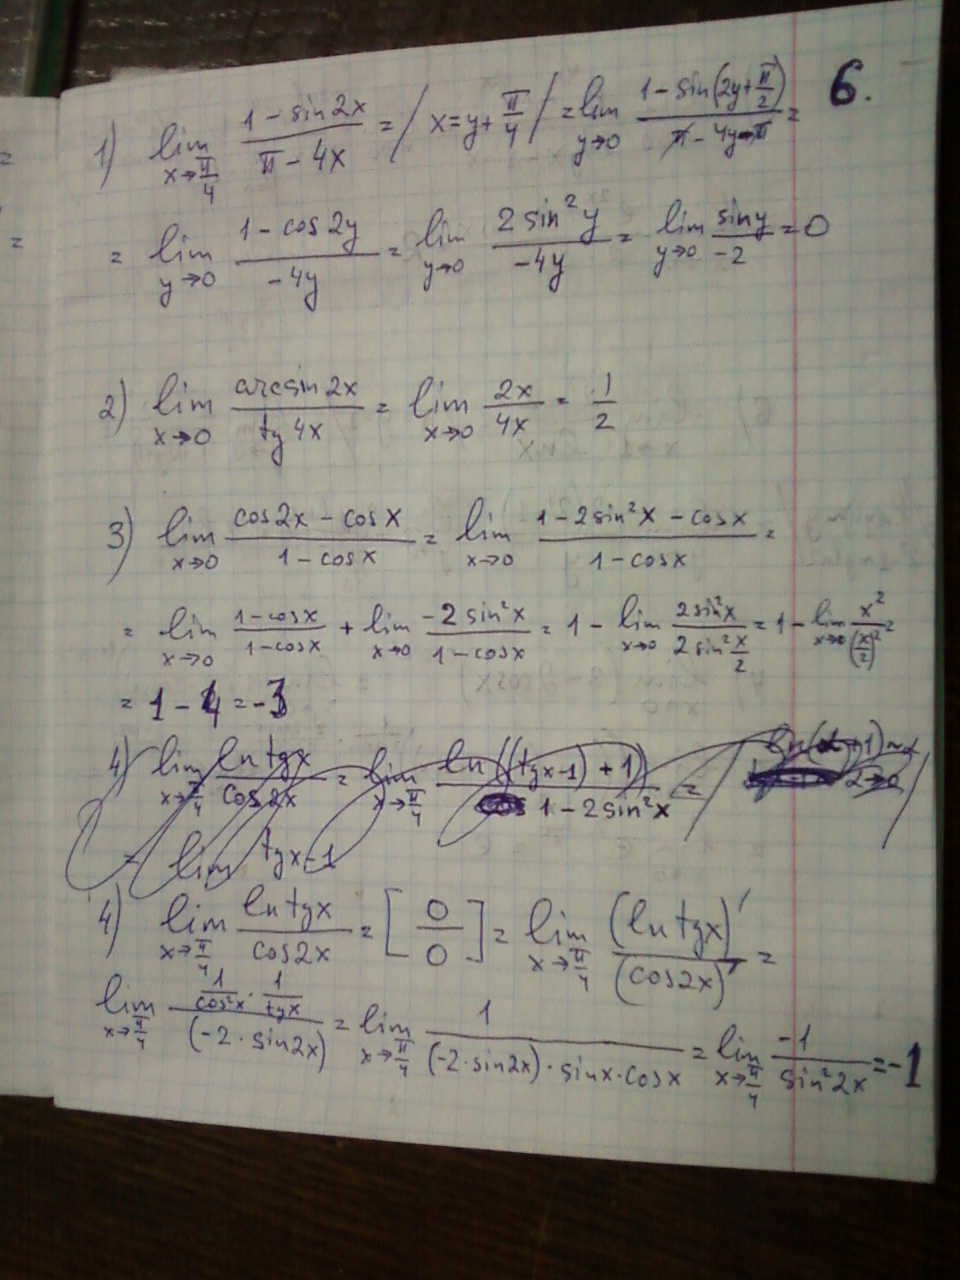 6.
1) lim x→π/4 (1 - sin2x)/(π - 4x) = / x = y + π/4 / = lim y→0 (1 - sin(2y + π/2))/(π - 4y - π) =
= lim y→0 (1 - cos2y)/(-4y) = lim y→0 (2 sin²y)/(-4y) = lim y→0 siny/(-2) = 0
2) lim x→0 (arcsin2x)/(tg4x) = lim x→0 2x/4x = 1/2
3) lim x→0 (cos2x - cosx)/(1 - cosx) = lim x→0 (1 - 2sin²x - cosx)/(1 - cosx) =
= lim x→0 (1 - cosx)/(1 - cosx) + lim x→0 (-2 sin²x)/(1 - cosx) = 1 - lim x→0 (2sin²x)/(2sin²x/2) = 1 - lim x→0 x²/(x/2)² =
= 1 - 4 = -3
4) lim x→π/4 (ln tgx)/(cos2x) = lim x→π/4 ln((tgx-1)+1)/(1 - 2sin²x) =
= lim tgx-1
4) lim x→π/4 (ln tgx)/(cos2x) = [0/0] = lim x→π/4 (ln tgx)'/(cos2x)' =
lim x→π/4 (1/cos²x · 1/tgx)/(-2·sin2x) = lim x→π/4 1/((-2·sin2x)·sinx·cosx) = lim x→π/4 -1/sin²2x = -1